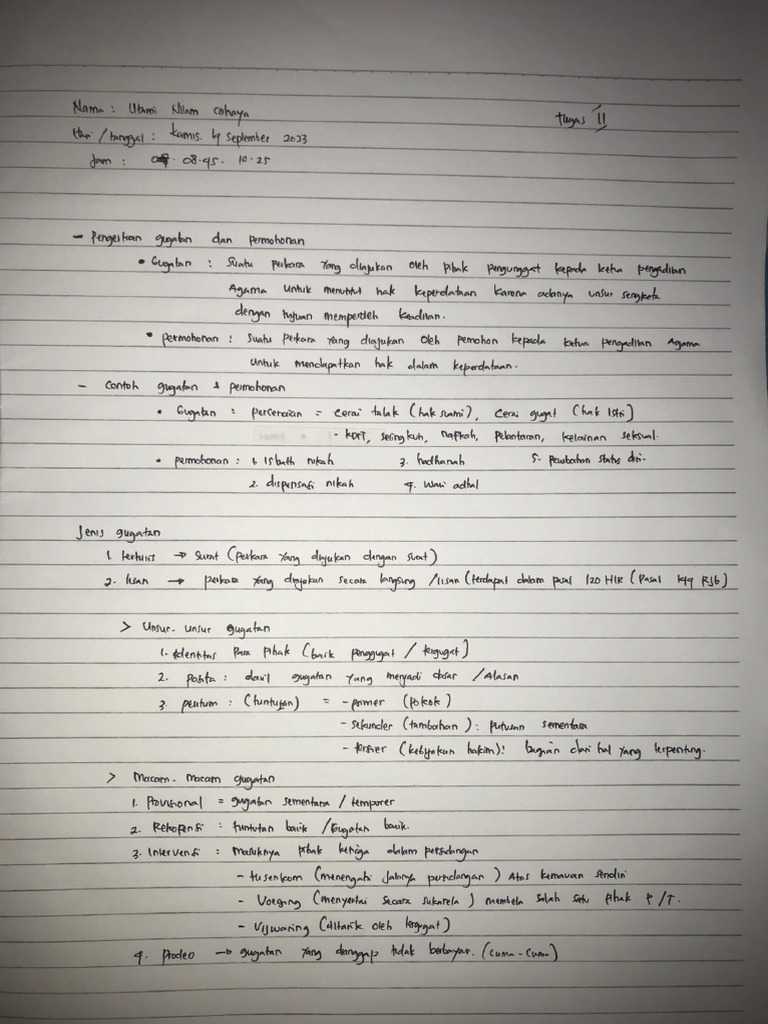 Nama : Utami Nuam Cahaya
Tugas II
Hari / tanggal : Kamis. 14 September 2023
Jam : 08.45. 10.25
- Pengertian gugatan dan permohonan
• Gugatan : Suatu perkara yang diajukan oleh pihak penggugat kepada ketua pengadilan
Agama untuk menuntut hak keperdataan karena adanya unsur sengketa
dengan tujuan memperoleh keadilan.
• permohonan : Suatu perkara yang diajukan oleh pemohon kepada ketua pengadilan Agama
untuk mendapatkan hak dalam keperdataan.
- Contoh gugatan & permohonan
• Gugatan : perceraian = cerai talak (hak suami), cerai gugat (hak Istri)
- KDRT, selingkuh, nafkah, pelantaran, kelainan seksual.
• permohonan : 1. Isbath nikah 3. hadhanah 5. perubahan status diri-
2. dispensasi nikah 4. wali adhal
Jenis gugatan
1. tertulis → surat (perkara yang diajukan dengan surat)
2. lisan → perkara yang diajukan secara langsung /lisan (terdapat dalam pasal 120 HIR (Pasal 144 RJb)
> Unsur-unsur gugatan
1. Identitas para pihak (baik penggugat / tergugat)
2. posita : dalil gugatan yang menjadi dasar /Alasan
3. petitum : (tuntutan) = - primer (pokok)
- sekunder (tambahan) : putusan sementara
- tersier (kebijakan hakim) : bagian dari hal yang terpenting.
> Macam-macam gugatan
1. Provisional = gugatan sementara / temporer
2. Rekopensi : tuntutan balik /Gugatan balik.
3. Intervensi : masuknya pihak ketiga dalam persidangan
- tusenkom (menengahi jalanya persidangan) Atas kemauan sendiri
- Voeging (menyertai secara sukarela) membela salah satu pihak P/T.
- Vijwaring (ditarik oleh tergugat)
4. Prodeo → gugatan yang dianggap tidak berbayar. (cuma-cuma)